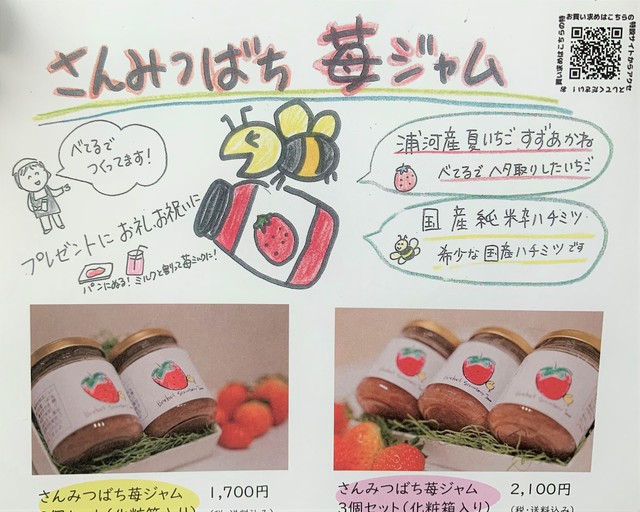 さんみつばち 苺ジャム
お買い求めはこちらの
特設サイトからアクセ
べてるで
つくってます！
浦河産夏いちご すずあかね
べてるでヘタ取りしたいちご
国産純粋ハチミツ
希少な国産ハチミツです
プレゼントに お礼お祝いに
パンにぬる！ ミルクと割って苺ミルクに！
さんみつばち苺ジャム 1,700円
2個セット(化粧箱入り) (税・送料込み)
さんみつばち苺ジャム 2,100円
3個セット(化粧箱入り) (税・送料込み)